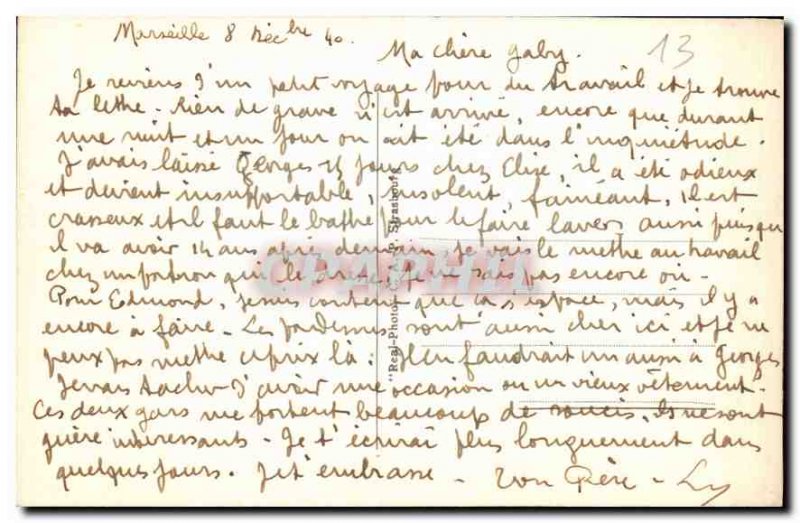 Marseille 8 Déc bre 40.
13
Ma chère Gaby.
Je reviens d'un petit voyage pour du travail et je trouve
ta lettre - Rien de grave n'est arrivé, encore que durant
une nuit et un jour on ait été dans l'inquiétude.
J'avais laissé Georges 15 jours chez Elise, il a été odieux
et devient insupportable, insolent, fainéant, il est
crasseux et il faut le battre pour le faire laver, aussi puisqu
il va avoir 14 ans après demain je vais le mettre au travail
chez un patron qui le dresse, je ne sais pas encore où -
Pour Edmond, je suis content que ça s'espace, mais il y a
encore à faire - Les pardessus sont aussi cher ici et je ne
peux pas mettre ce prix là. Il en faudrait un aussi à Georges
Je vais tacher d'avoir une occasion ou un vieux vêtement.
Ces deux gars me portent beaucoup de soucis. Ils ne sont
guère intéressants - Je t'écrirai plus longuement dans
quelques jours. Je t'embrasse - Ton Père -
"Real-Photo" C. A. P. Strasbourg
CPAPHIL